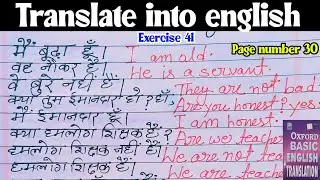 Translate into english
Exercise 41
Page number 30
मैं बूढ़ा हूँ। I am old.
वह नौकर है। He is a servant.
वे बुरे नहीं हैं। They are not bad
क्या तुम ईमानदार हो? हाँ, Are you honest? yes
मैं ईमानदार हूँ। I am honest.
क्या हमलोग शिक्षक हैं? Are we teache
हमलोग शिक्षक नहीं हैं। We are not tea
We are teache
OXFORD
BASIC
ENGLISH
TRANSLATION